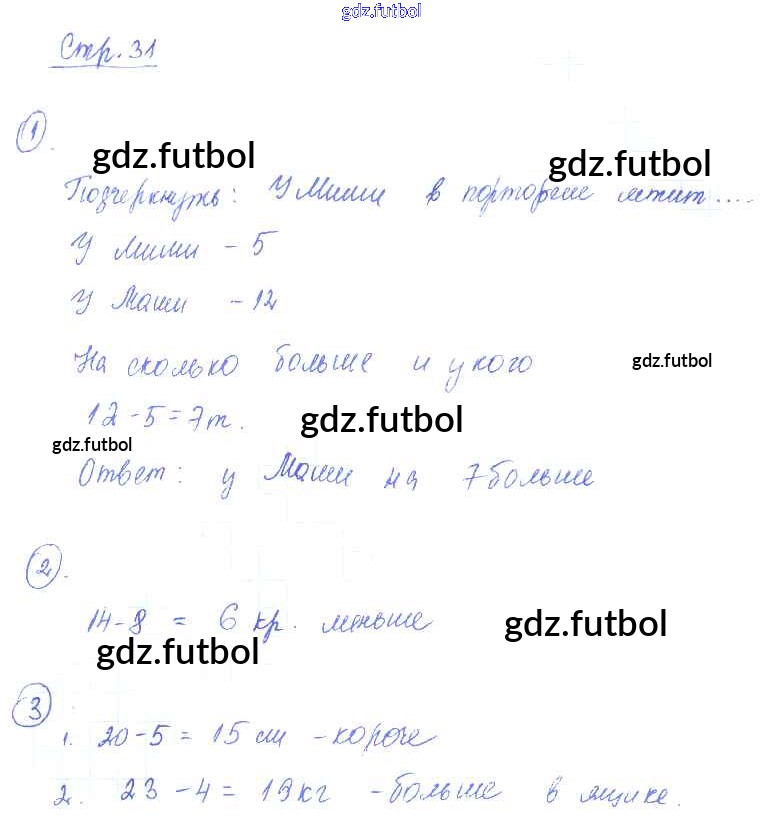 gdz.futbol
Стр. 31
1.
gdz.futbol gdz.futbol
Подчеркнуть: У Миши в портфеле лежит....
У Миши - 5
У Маши - 12
На сколько больше и у кого gdz.futbol
12-5=7т. gdz.futbol
gdz.futbol
Ответ: у Маши на 7 больше
2.
14-8 = 6 кр. меньше gdz.futbol
gdz.futbol
3
1. 20-5 = 15 см - короче
2. 23-4 = 19 кг - больше в ящике.